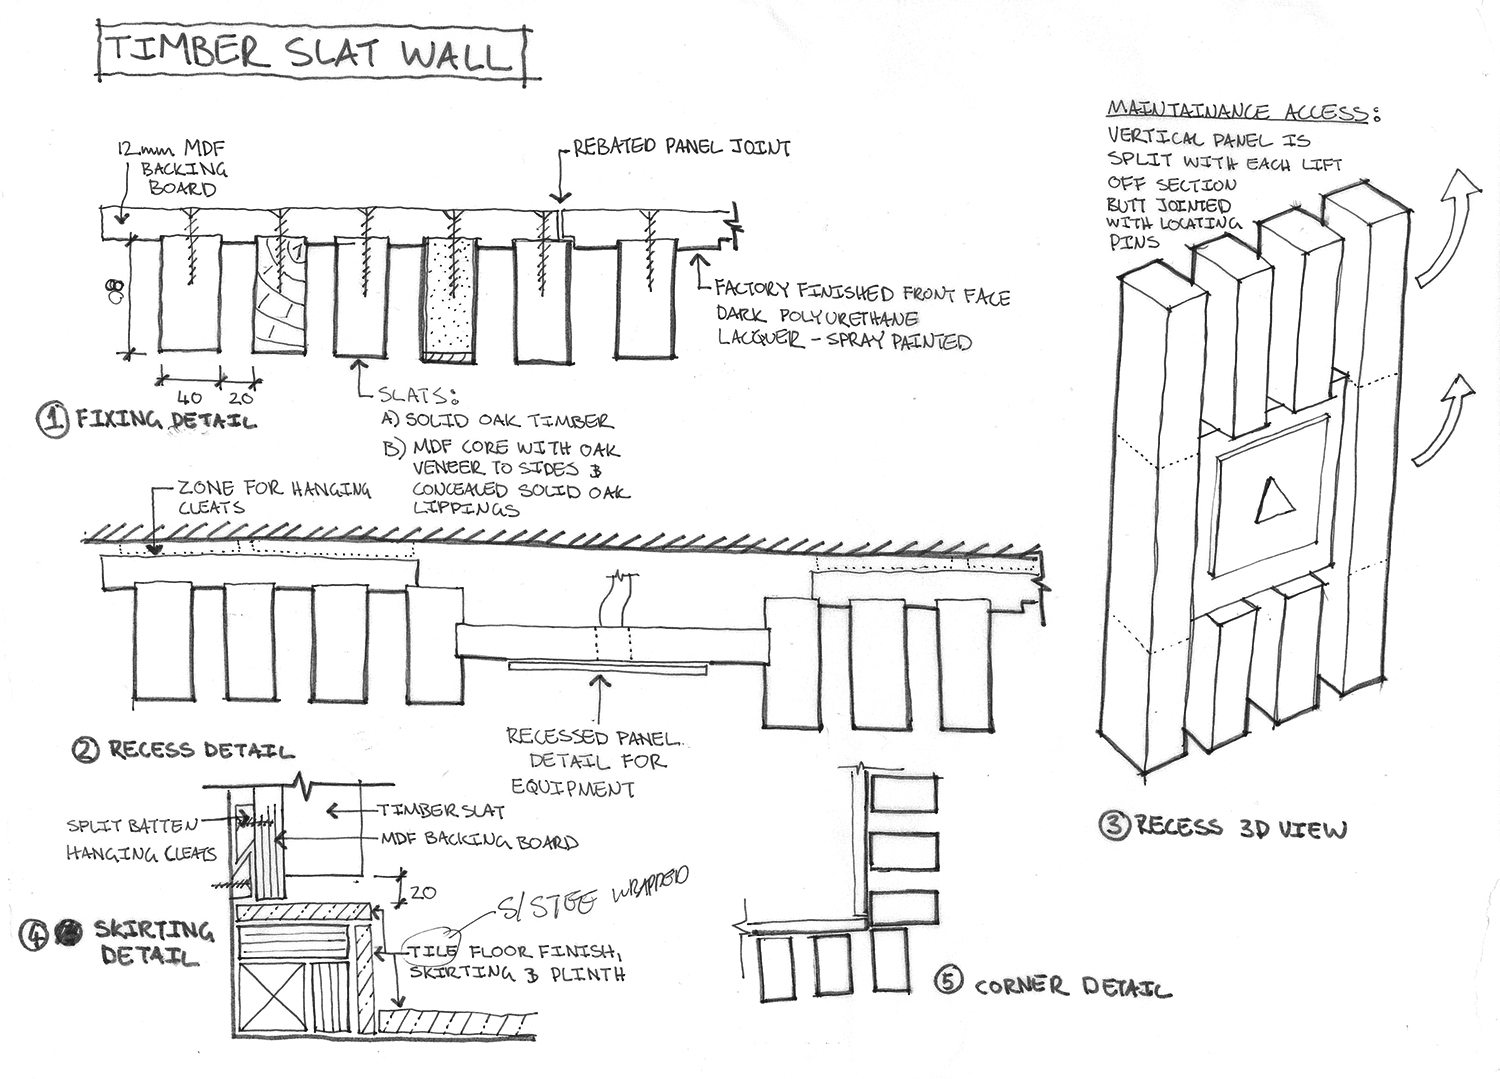 TIMBER SLAT WALL
12mm MDF
BACKING
BOARD
REBATED PANEL JOINT
80
40
20
FACTORY FINISHED FRONT FACE
DARK POLYURETHANE
LACQUER - SPRAY PAINTED
SLATS:
A) SOLID OAK TIMBER
B) MDF CORE WITH OAK
VENEER TO SIDES &
CONCEALED SOLID OAK
LIPPINGS
1 FIXING DETAIL
MAINTAINANCE ACCESS:
VERTICAL PANEL IS
SPLIT WITH EACH LIFT
OFF SECTION
BUTT JOINTED
WITH LOCATING
PINS
ZONE FOR HANGING
CLEATS
RECESSED PANEL
DETAIL FOR
EQUIPMENT
2 RECESS DETAIL
3 RECESS 3D VIEW
SPLIT BATTEN
HANGING CLEATS
TIMBER SLAT
MDF BACKING BOARD
20
S/STEE WRAPPED
TILE FLOOR FINISH,
SKIRTING & PLINTH
4 SKIRTING
DETAIL
5 CORNER DETAIL